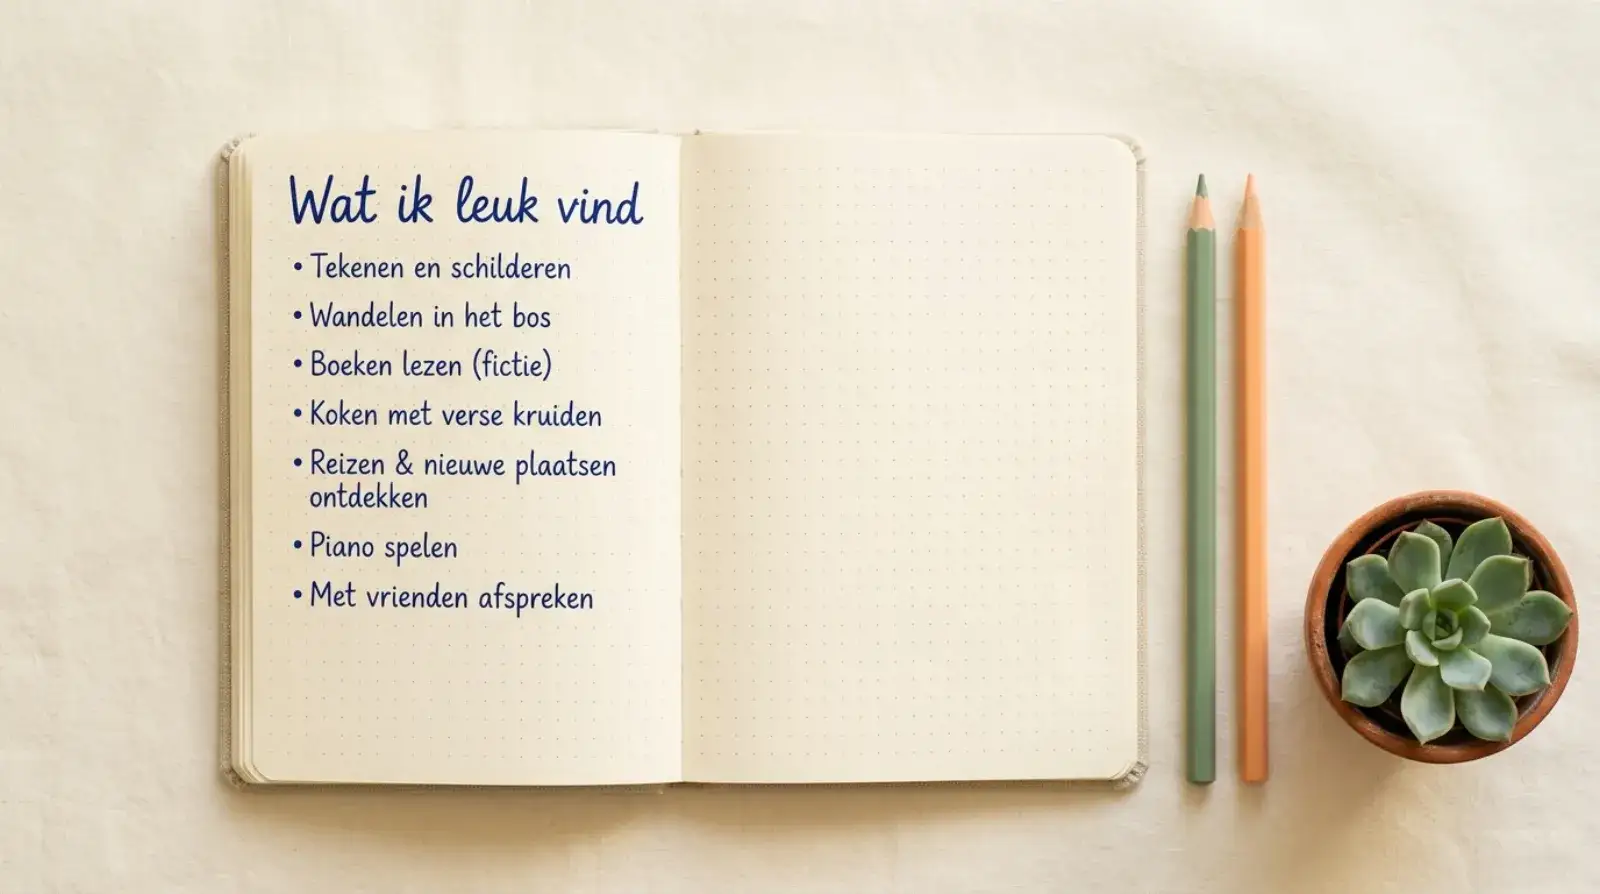 Wat ik leuk vind
• Tekenen en schilderen
• Wandelen in het bos
• Boeken lezen (fictie)
• Koken met verse kruiden
• Reizen & nieuwe plaatsen
ontdekken
• Piano spelen
• Met vrienden afspreken